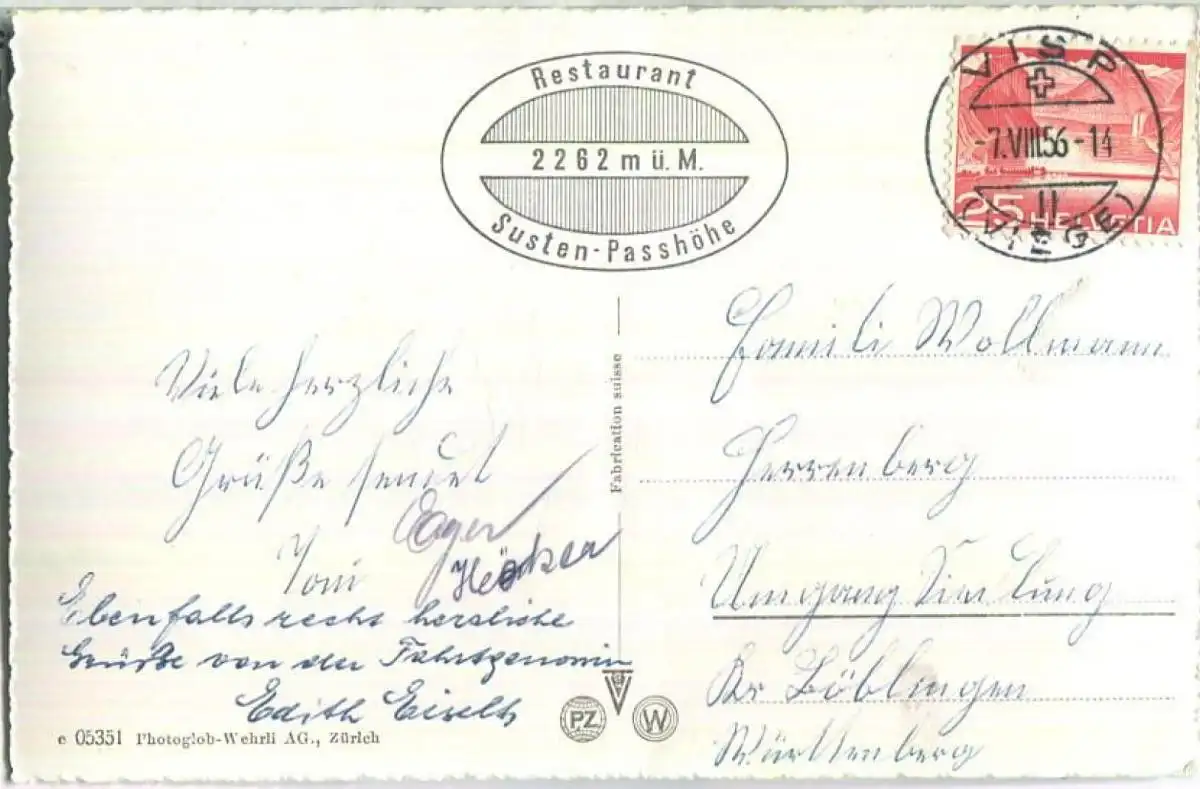 Restaurant
2262 m ü. M.
Susten-Passhöhe
VISP
-7.VIII.56-14
(VIÈGE)
25 HELVETIA
Viele herzliche
Grüße sendet
Toni
Ebenfalls recht herzliche
Grüße von der Fahrtgenossin
Edith
Familie Wollmann
Herrenberg
Umgang Siedlung
Kr Böblingen
Württemberg
Fabrication suisse
PZ W
e 05351 Photoglob-Wehrli AG., Zürich